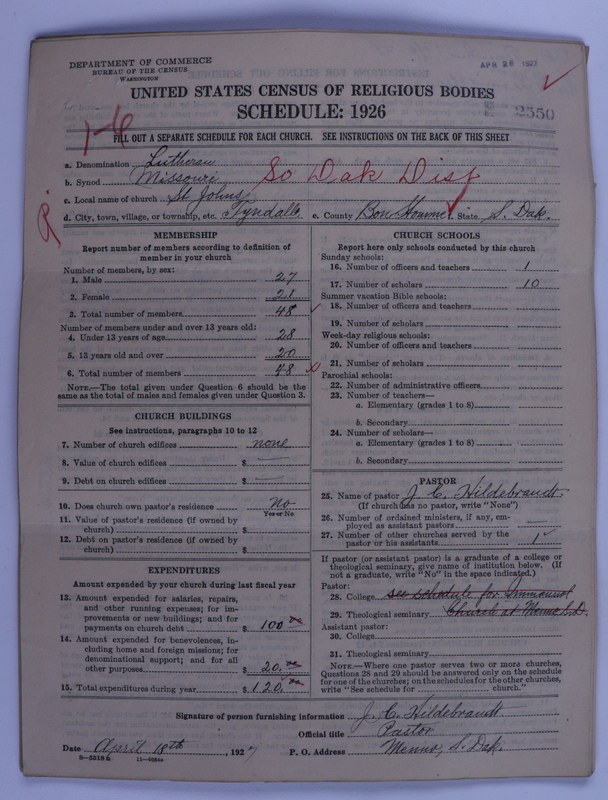 DEPARTMENT OF COMMERCE
BUREAU OF THE CENSUS
WASHINGTON
APR 26 1927
UNITED STATES CENSUS OF RELIGIOUS BODIES
SCHEDULE: 1926
2550
1-6
FILL OUT A SEPARATE SCHEDULE FOR EACH CHURCH. SEE INSTRUCTIONS ON THE BACK OF THIS SHEET
a. Denomination Lutheran
b. Synod Missouri So Dak Dist
c. Local name of church St Johns
d. City, town, village, or township, etc. Tyndall e. County Bon Homme f. State S. Dak.
MEMBERSHIP
Report number of members according to definition of
member in your church
Number of members, by sex:
1. Male 27
2. Female 21
3. Total number of members 48
Number of members under and over 13 years old:
4. Under 13 years of age 28
5. 13 years old and over 20
6. Total number of members 48
NOTE.—The total given under Question 6 should be the
same as the total of males and females given under Question 3.
CHURCH BUILDINGS
See instructions, paragraphs 10 to 12
7. Number of church edifices none
8. Value of church edifices $
9. Debt on church edifices $
10. Does church own pastor's residence No
Yes or No
11. Value of pastor's residence (if owned by
church) $
12. Debt on pastor's residence (if owned by
church) $
EXPENDITURES
Amount expended by your church during last fiscal year
13. Amount expended for salaries, repairs,
and other running expenses; for im-
provements or new buildings; and for
payments on church debt $ 100
14. Amount expended for benevolences, in-
cluding home and foreign missions; for
denominational support; and for all
other purposes $ 20.
15. Total expenditures during year $ 120.
CHURCH SCHOOLS
Report here only schools conducted by this church
Sunday schools:
16. Number of officers and teachers 1
17. Number of scholars 10
Summer vacation Bible schools:
18. Number of officers and teachers
19. Number of scholars
Week-day religious schools:
20. Number of officers and teachers
21. Number of scholars
Parochial schools:
22. Number of administrative officers
23. Number of teachers—
a. Elementary (grades 1 to 8)
b. Secondary
24. Number of scholars—
a. Elementary (grades 1 to 8)
b. Secondary
PASTOR
25. Name of pastor J. C. Hildebrandt
(If church has no pastor, write "None")
26. Number of ordained ministers, if any, em-
ployed as assistant pastors
27. Number of other churches served by the
pastor or his assistants 1
If pastor (or assistant pastor) is a graduate of a college or
theological seminary, give name of institution below. (If
not a graduate, write "No" in the space indicated.)
Pastor:
28. College see schedule for Immanuel
29. Theological seminary Church at Menno S.D.
Assistant pastor:
30. College
31. Theological seminary
NOTE.—Where one pastor serves two or more churches,
Questions 28 and 29 should be answered only on the schedule
for one of the churches; on the schedules for the other churches,
write "See schedule for church."
Signature of person furnishing information J. C. Hildebrandt
Official title Pastor
Date April 18th, 1927 P. O. Address Menno, S. Dak.
8-5518 a 11-9084